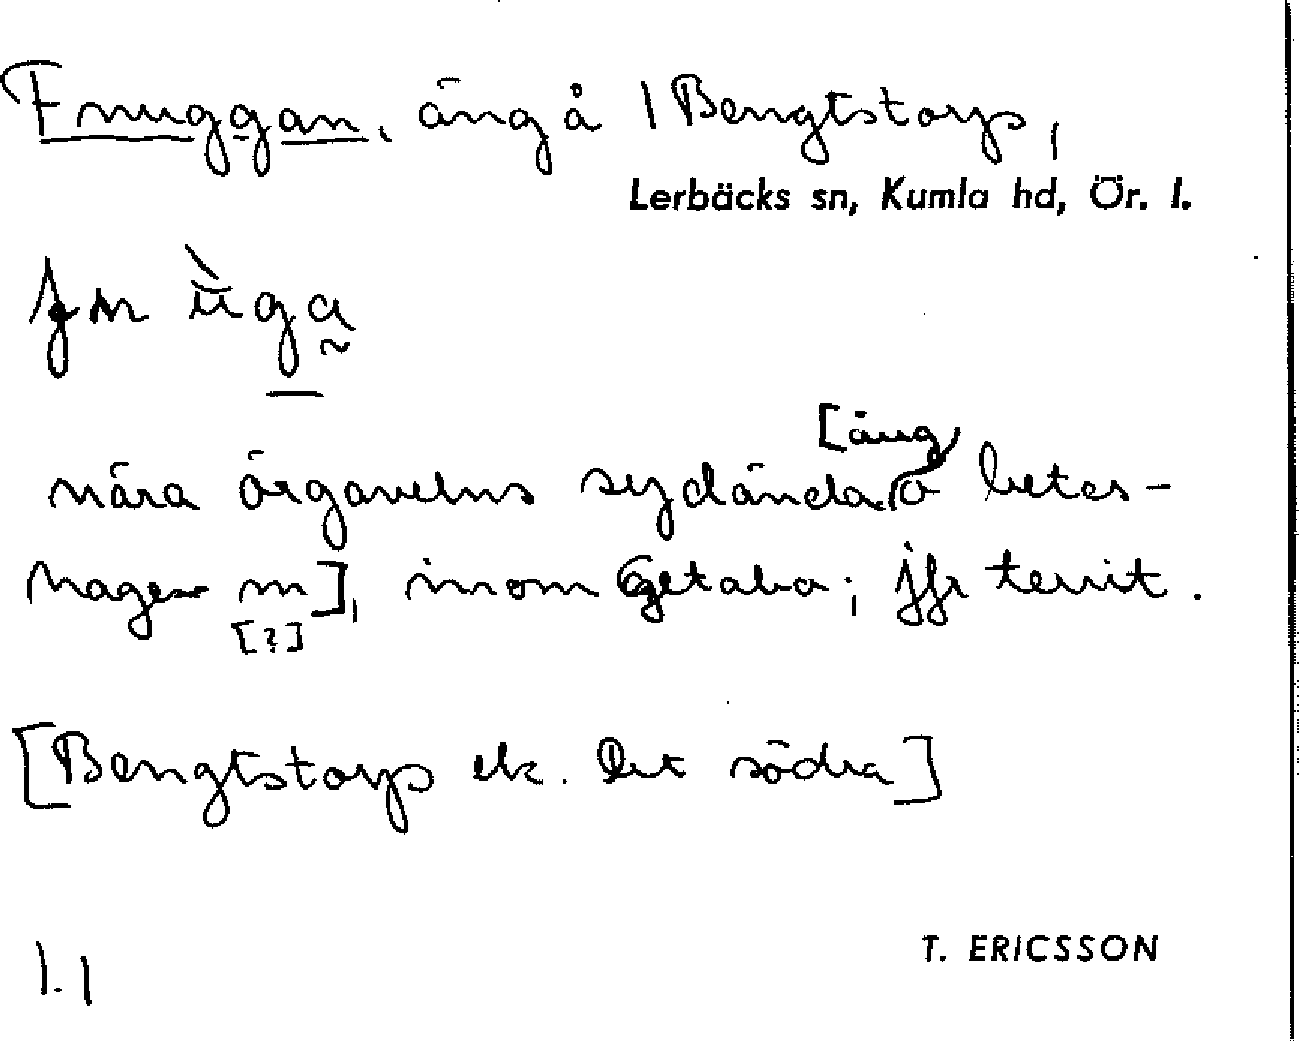 Fnuggan, äng å 1 Bengtstorp,
Lerbäcks sn, Kumla hd, Ör. l.
fnùga
[äng
nära ärgavelns sydända, o betes-
hage m], inom Egetaba; jfr territ.
[?]
[Bengtstorp ek. Det södra]
1.1
T. ERICSSON